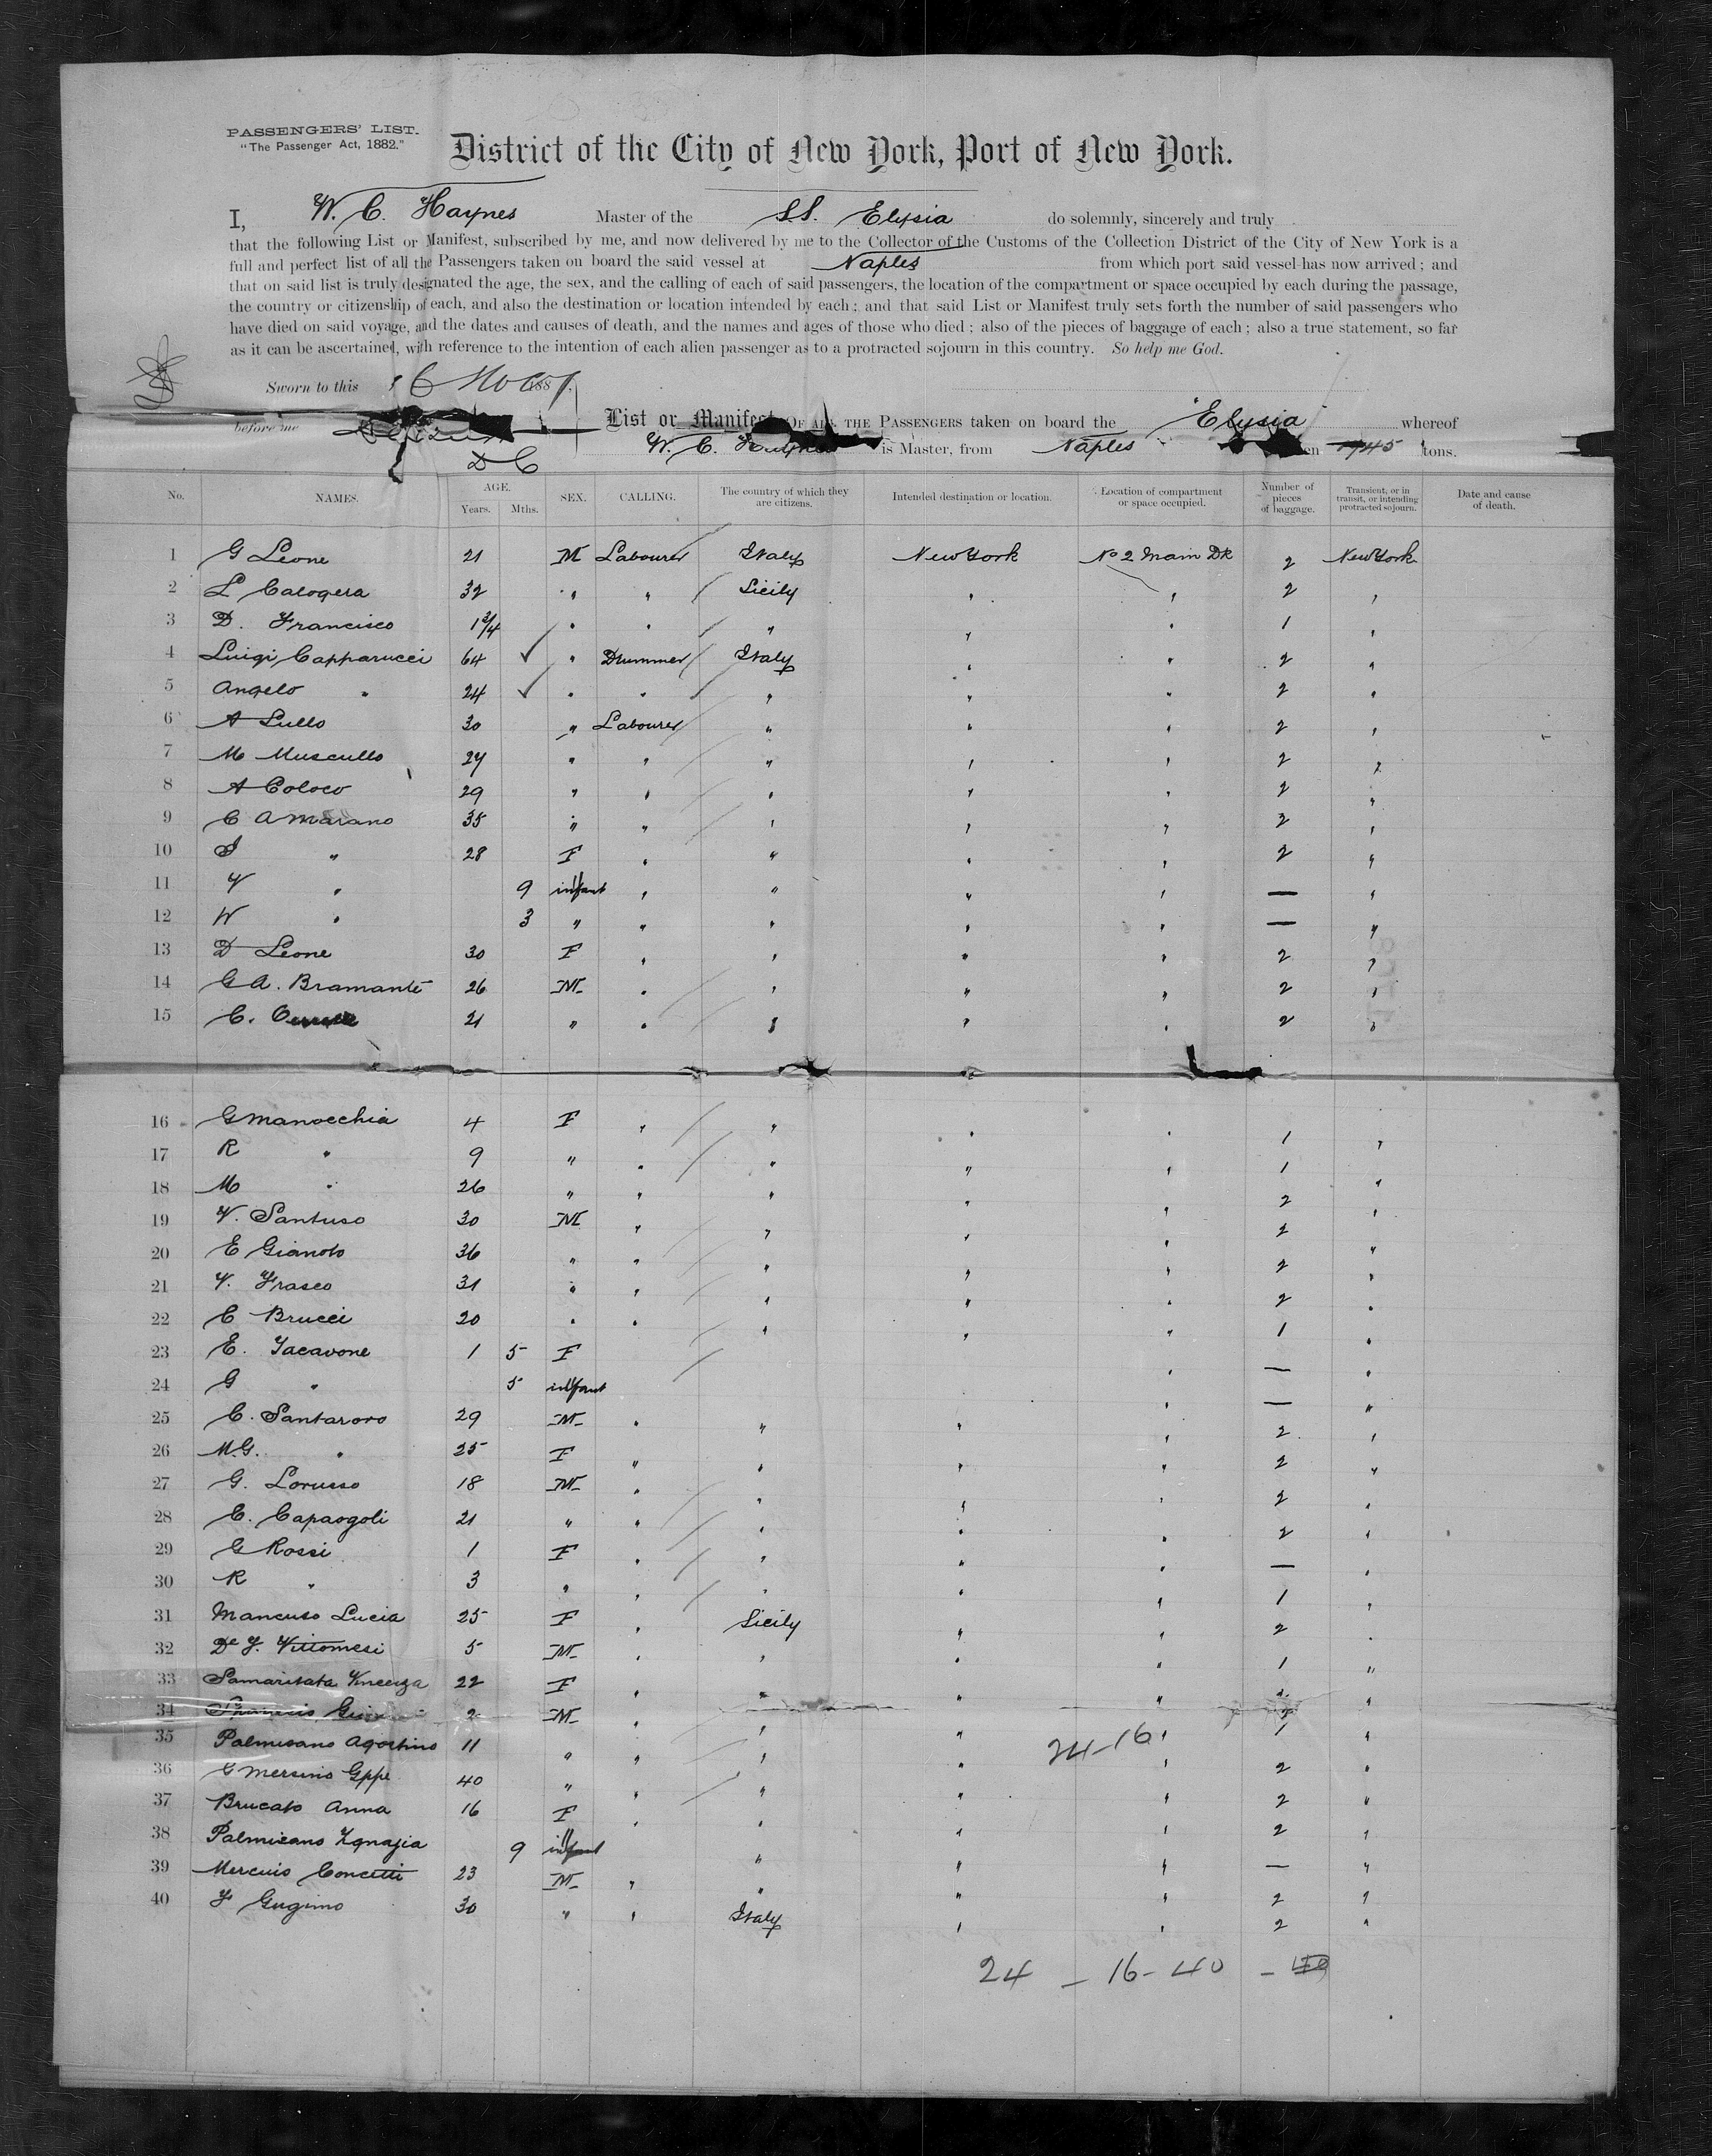 PASSENGERS' LIST.
"The Passenger Act, 1882."
District of the City of New York, Port of New York.
I, W. C. Haynes Master of the S.S. Elysia do solemnly, sincerely and truly
that the following List or Manifest, subscribed by me, and now delivered by me to the Collector of the Customs of the Collection District of the City of New York is a
full and perfect list of all the Passengers taken on board the said vessel at Naples from which port said vessel has now arrived; and
that on said list is truly designated the age, the sex, and the calling of each of said passengers, the location of the compartment or space occupied by each during the passage,
the country or citizenship of each, and also the destination or location intended by each; and that said List or Manifest truly sets forth the number of said passengers who
have died on said voyage, and the dates and causes of death, and the names and ages of those who died; also of the pieces of baggage of each; also a true statement, so far
as it can be ascertained, with reference to the intention of each alien passenger as to a protracted sojourn in this country. So help me God.
Sworn to this 188
before me
D C
List or Manifest OF ALL THE PASSENGERS taken on board the "Elysia" whereof
W. C. Haynes is Master, from Naples tons.
No. NAMES. AGE. Years. Mths. SEX. CALLING. The country of which they are citizens. Intended destination or location. Location of compartment or space occupied. Number of pieces of baggage. Transient, or in transit, or intending protracted sojourn. Date and cause of death.
1 G Leone 21 M Labourer Italy New York No 2 Main Dk 2 New York
2 L Calogera 32 " " Sicily " " 2 "
3 D. Francisco 1 3/4 " " " " " 1 "
4 Luigi Capparucci 64 ✓ " Drummer Italy " " 2 "
5 Angelo " 24 ✓ " " " " " 2 "
6 A Lullo 30 " Labourer " " " 2 "
7 M Muscullo 27 " " " " " 2 "
8 A Coloco 29 " " " " " 2 "
9 C Amarano 35 " " " " " 2 "
10 S " 28 F " " " " 2 "
11 V " 9 infant " " " " — "
12 W " 3 " " " " " — "
13 D Leone 30 F " " " " 2 "
14 G A. Bramante 26 M " " " " 2 "
15 C. 21 " " " " " 2 "
16 G Manocchia 4 F " " " " 1 "
17 R " 9 " " " " " 1 "
18 M " 26 " " " " " 2 "
19 V. Santuso 30 M " " " " 2 "
20 E Gianoto 36 " " " " " 2 "
21 V. Frasco 31 " " " " " 2 "
22 C Brucci 20 " " " " " 1 "
23 E. Iacavone 1 5 F " — "
24 G " 5 infant " — "
25 C. Santaroro 29 M " " " " 2 "
26 M.G. " 25 F " " " " 2 "
27 G. Lorusso 18 M " " " " 2 "
28 E. Capasgoli 21 " " " " " 2 "
29 G Rossi 1 F " " " " — "
30 R " 3 " " " " " 1 "
31 Mancuso Lucia 25 F " Sicily " " 2 "
32 De J. Vittomesi 5 M " " " " 1 "
33 Samaritata Vincenza 22 F " " " " 2 "
34 2 M " " " " 1 "
35 Palmisano Agostino 11 " " " " " 2 "
24-16
36 G Mersino Gppe 40 " " " " " 2 "
37 Brucato Anna 16 F " " " " 2 "
38 Palmisano Ignazia 9 infant " " " — "
39 Mercuio Concetti 23 M " " " " 2 "
40 F Gugino 30 " " Italy " " 2 "
24 – 16 – 40 –